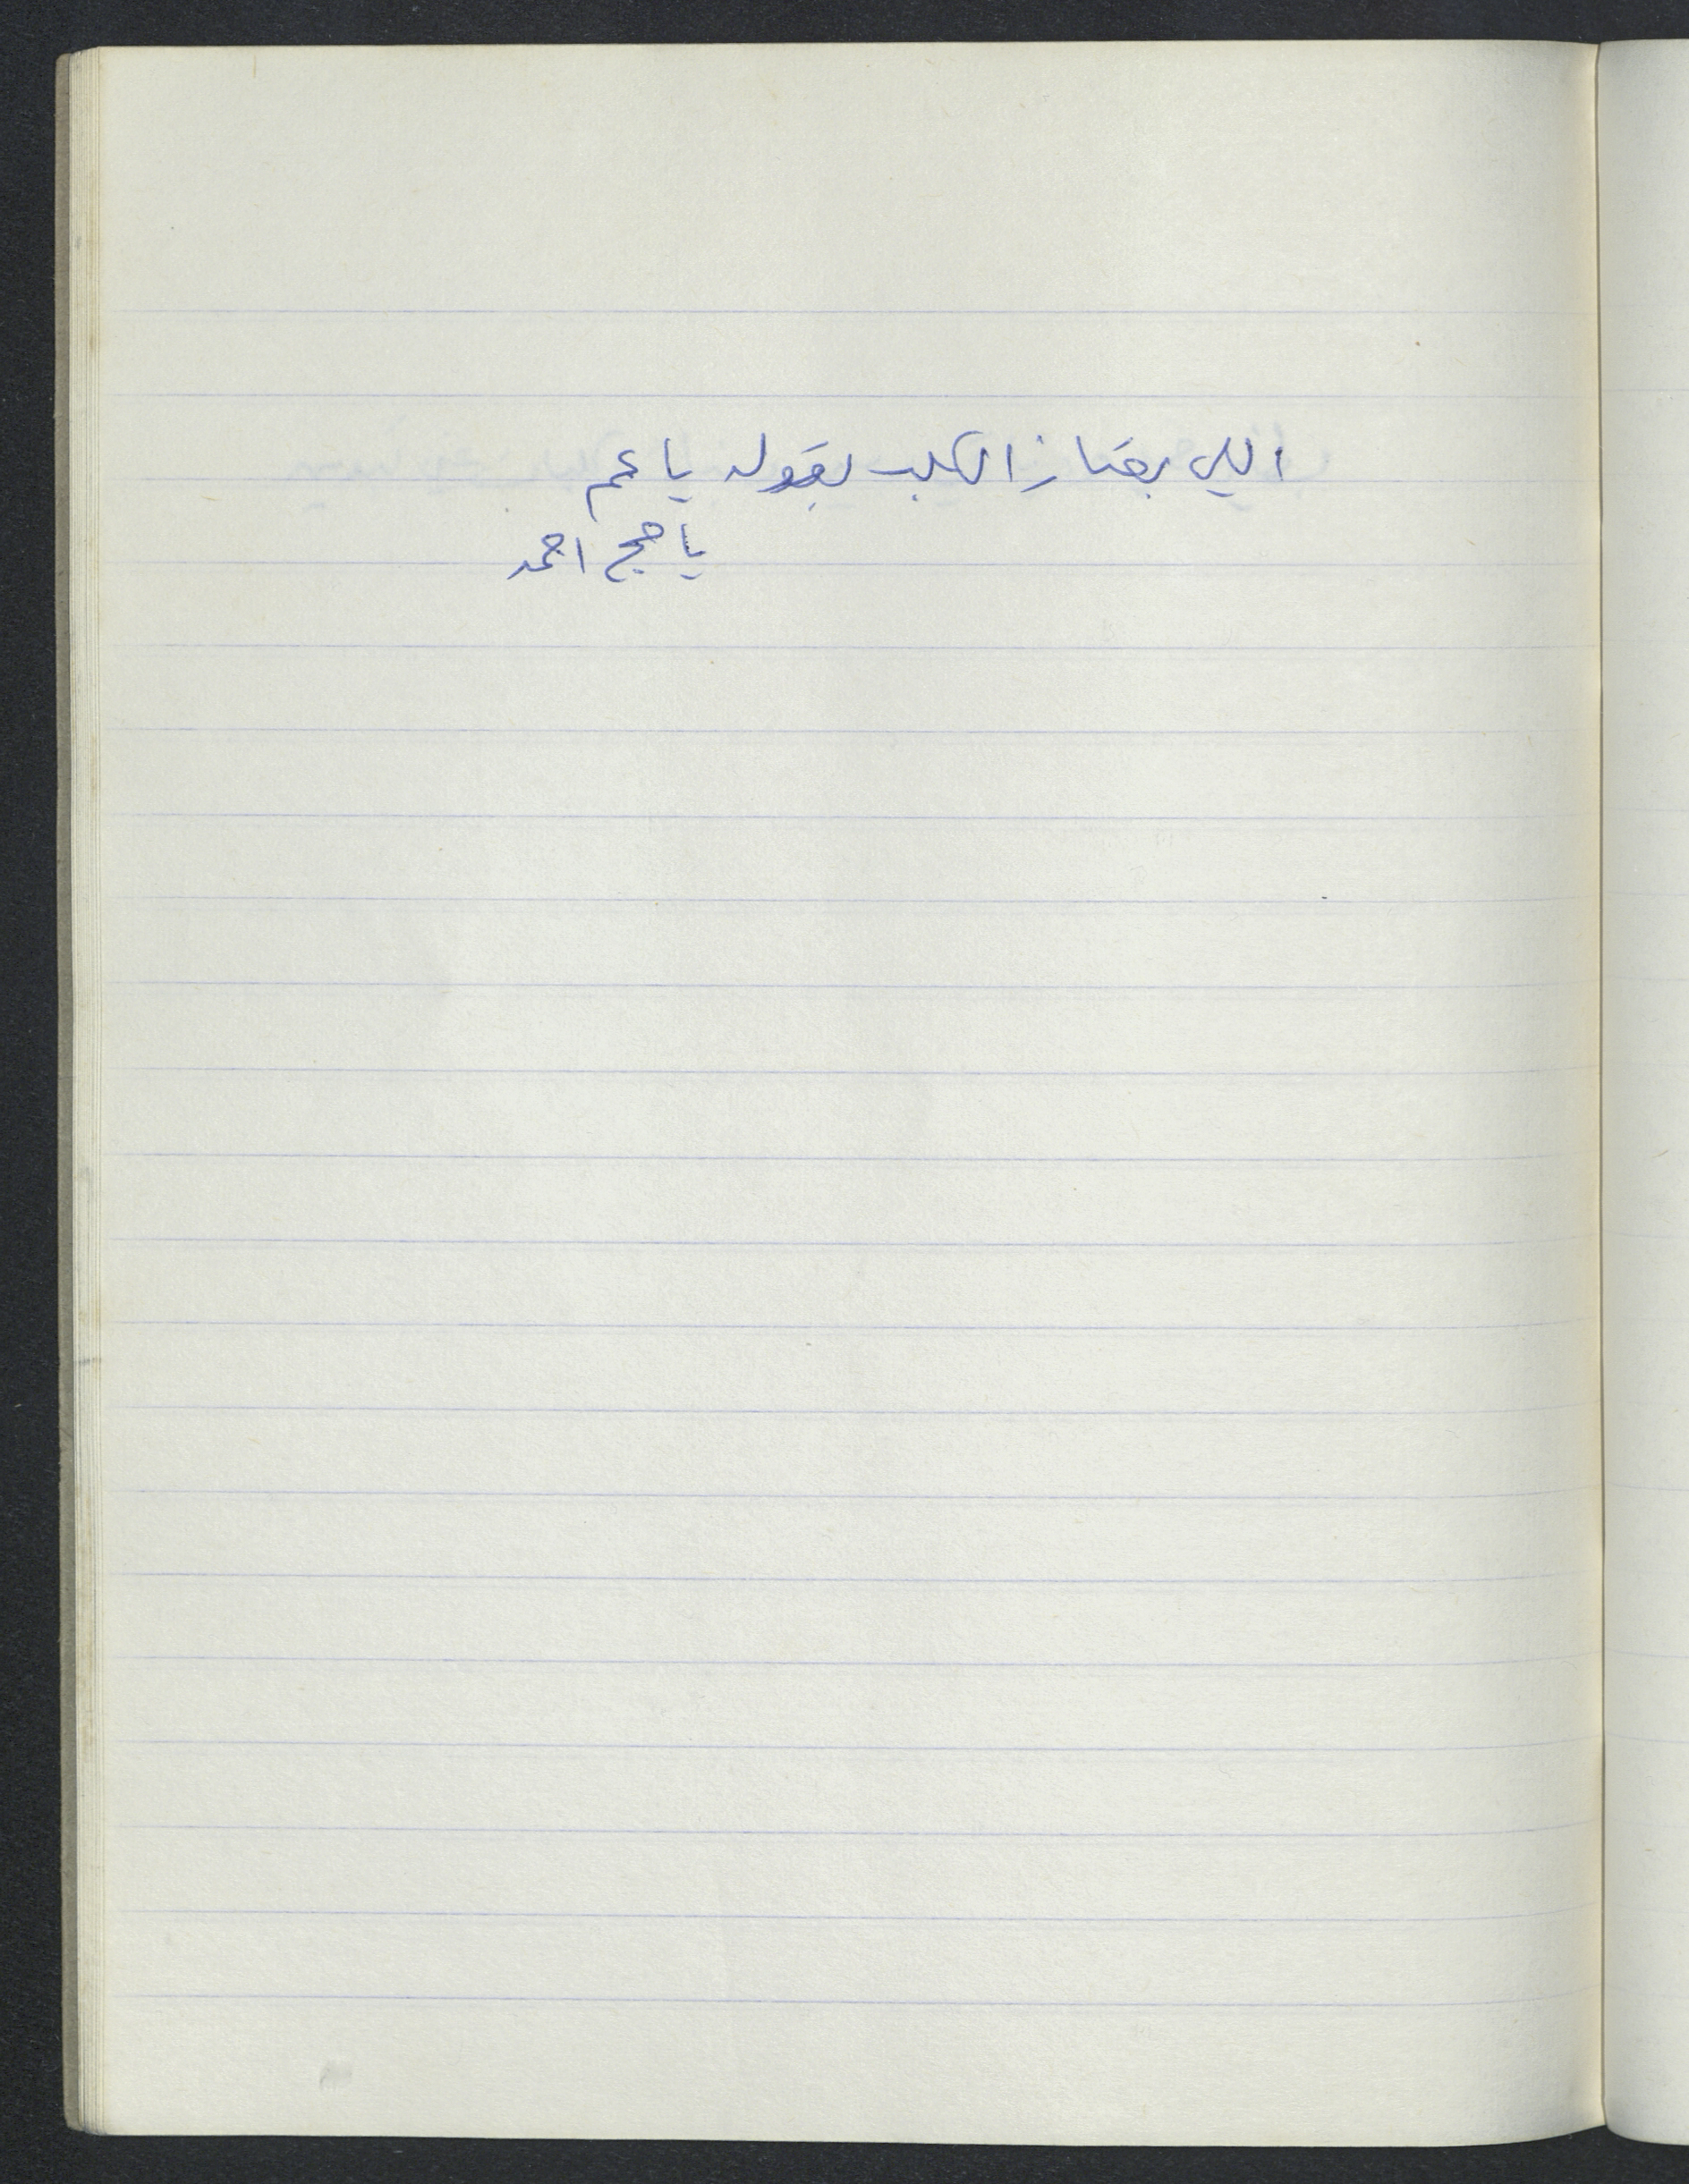 اللي بعتاز الكلب بقوله يا عم
يا حج احمد